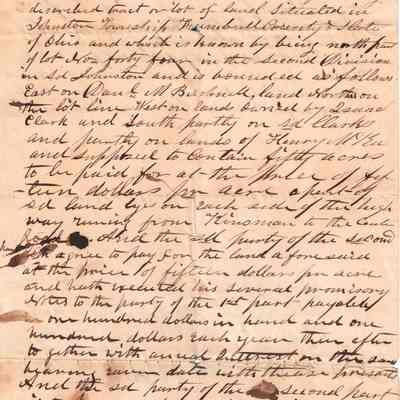 described tract or lot of land Situated in
Johnston Township Trumbull County & State
of Ohio and which is known by being north part
of lot Non forty four in the Second Division
in Sd Johnston and is bounded as follows
East on M Bushnell, land North on
the lot line West on lands owned by Isaac
Clark and South partly on sd Clark
and partly on lands of Henry
and supposed to contain fifty acres
to be paid for at the price of fif
-teen dollars per acre a part of
sd land lye on each side of the high
way runing from Kingsman to the
And the sd party of the second
agree to pay for the land afore said
at the price of fifteen dollars per acre
and hath executed his several promisory
Notes to the party of the 1st part payable
in one hundred dollars in hand and one
hundred dollars each year there after
to gether with anual Interest on the same
bearing even date with these presents
And the sd party of the second part